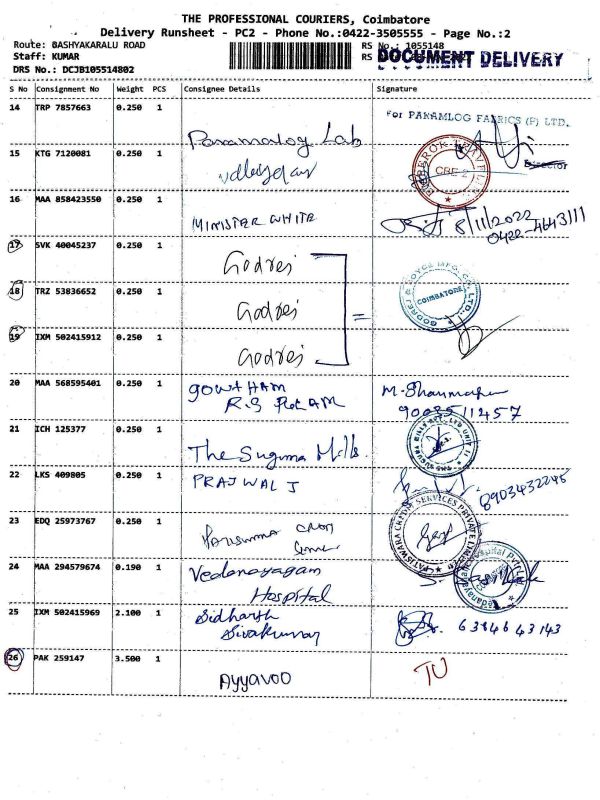 THE PROFESSIONAL COURIERS, Coimbatore
Delivery Runsheet - PC2 - Phone No.:0422-3505555 - Page No.:2
Route: BASHYAKARALU ROAD
RS No.: 1055148
Staff: KUMAR
RS
DOCUMENT DELIVERY
DRS No.: DCJB105514802
S No Consignment No Weight PCS Consignee Details Signature
14 TRP 7857663 0.250 1
For PARAMLOG FABRICS (P) LTD.
Paramalog Lab
Director
15 KTG 7120081 0.250 1
CBE 2
16 MAA 858423550 0.250 1
MINISTER WHITE
8/11/2022
0422-4643111
17 SVK 40045237 0.250 1
Godrej
18 TRZ 53836652 0.250 1
Godrej =
GODREJ & BOYCE MFG. CO. LTD.,
COIMBATORE
19 IXM 502415912 0.250 1
Godrej
20 MAA 568595401 0.250 1
GOWTHAM
R.S PURAM
9003511457
21 ICH 125377 0.250 1
The Suguna Mills.
22 LKS 409805 0.250 1
PRAJWAL J
8903432245
23 EDQ 25973767 0.250 1
CREDIT SERVICES PRIVATE LIMITED
24 MAA 294579674 0.190 1
Vedanayagam
Hospital
25 IXM 502415969 2.100 1
Sidharth
Sivakumar
63846 43143
26 PAK 259147 3.500 1
AYYAVOO
TU